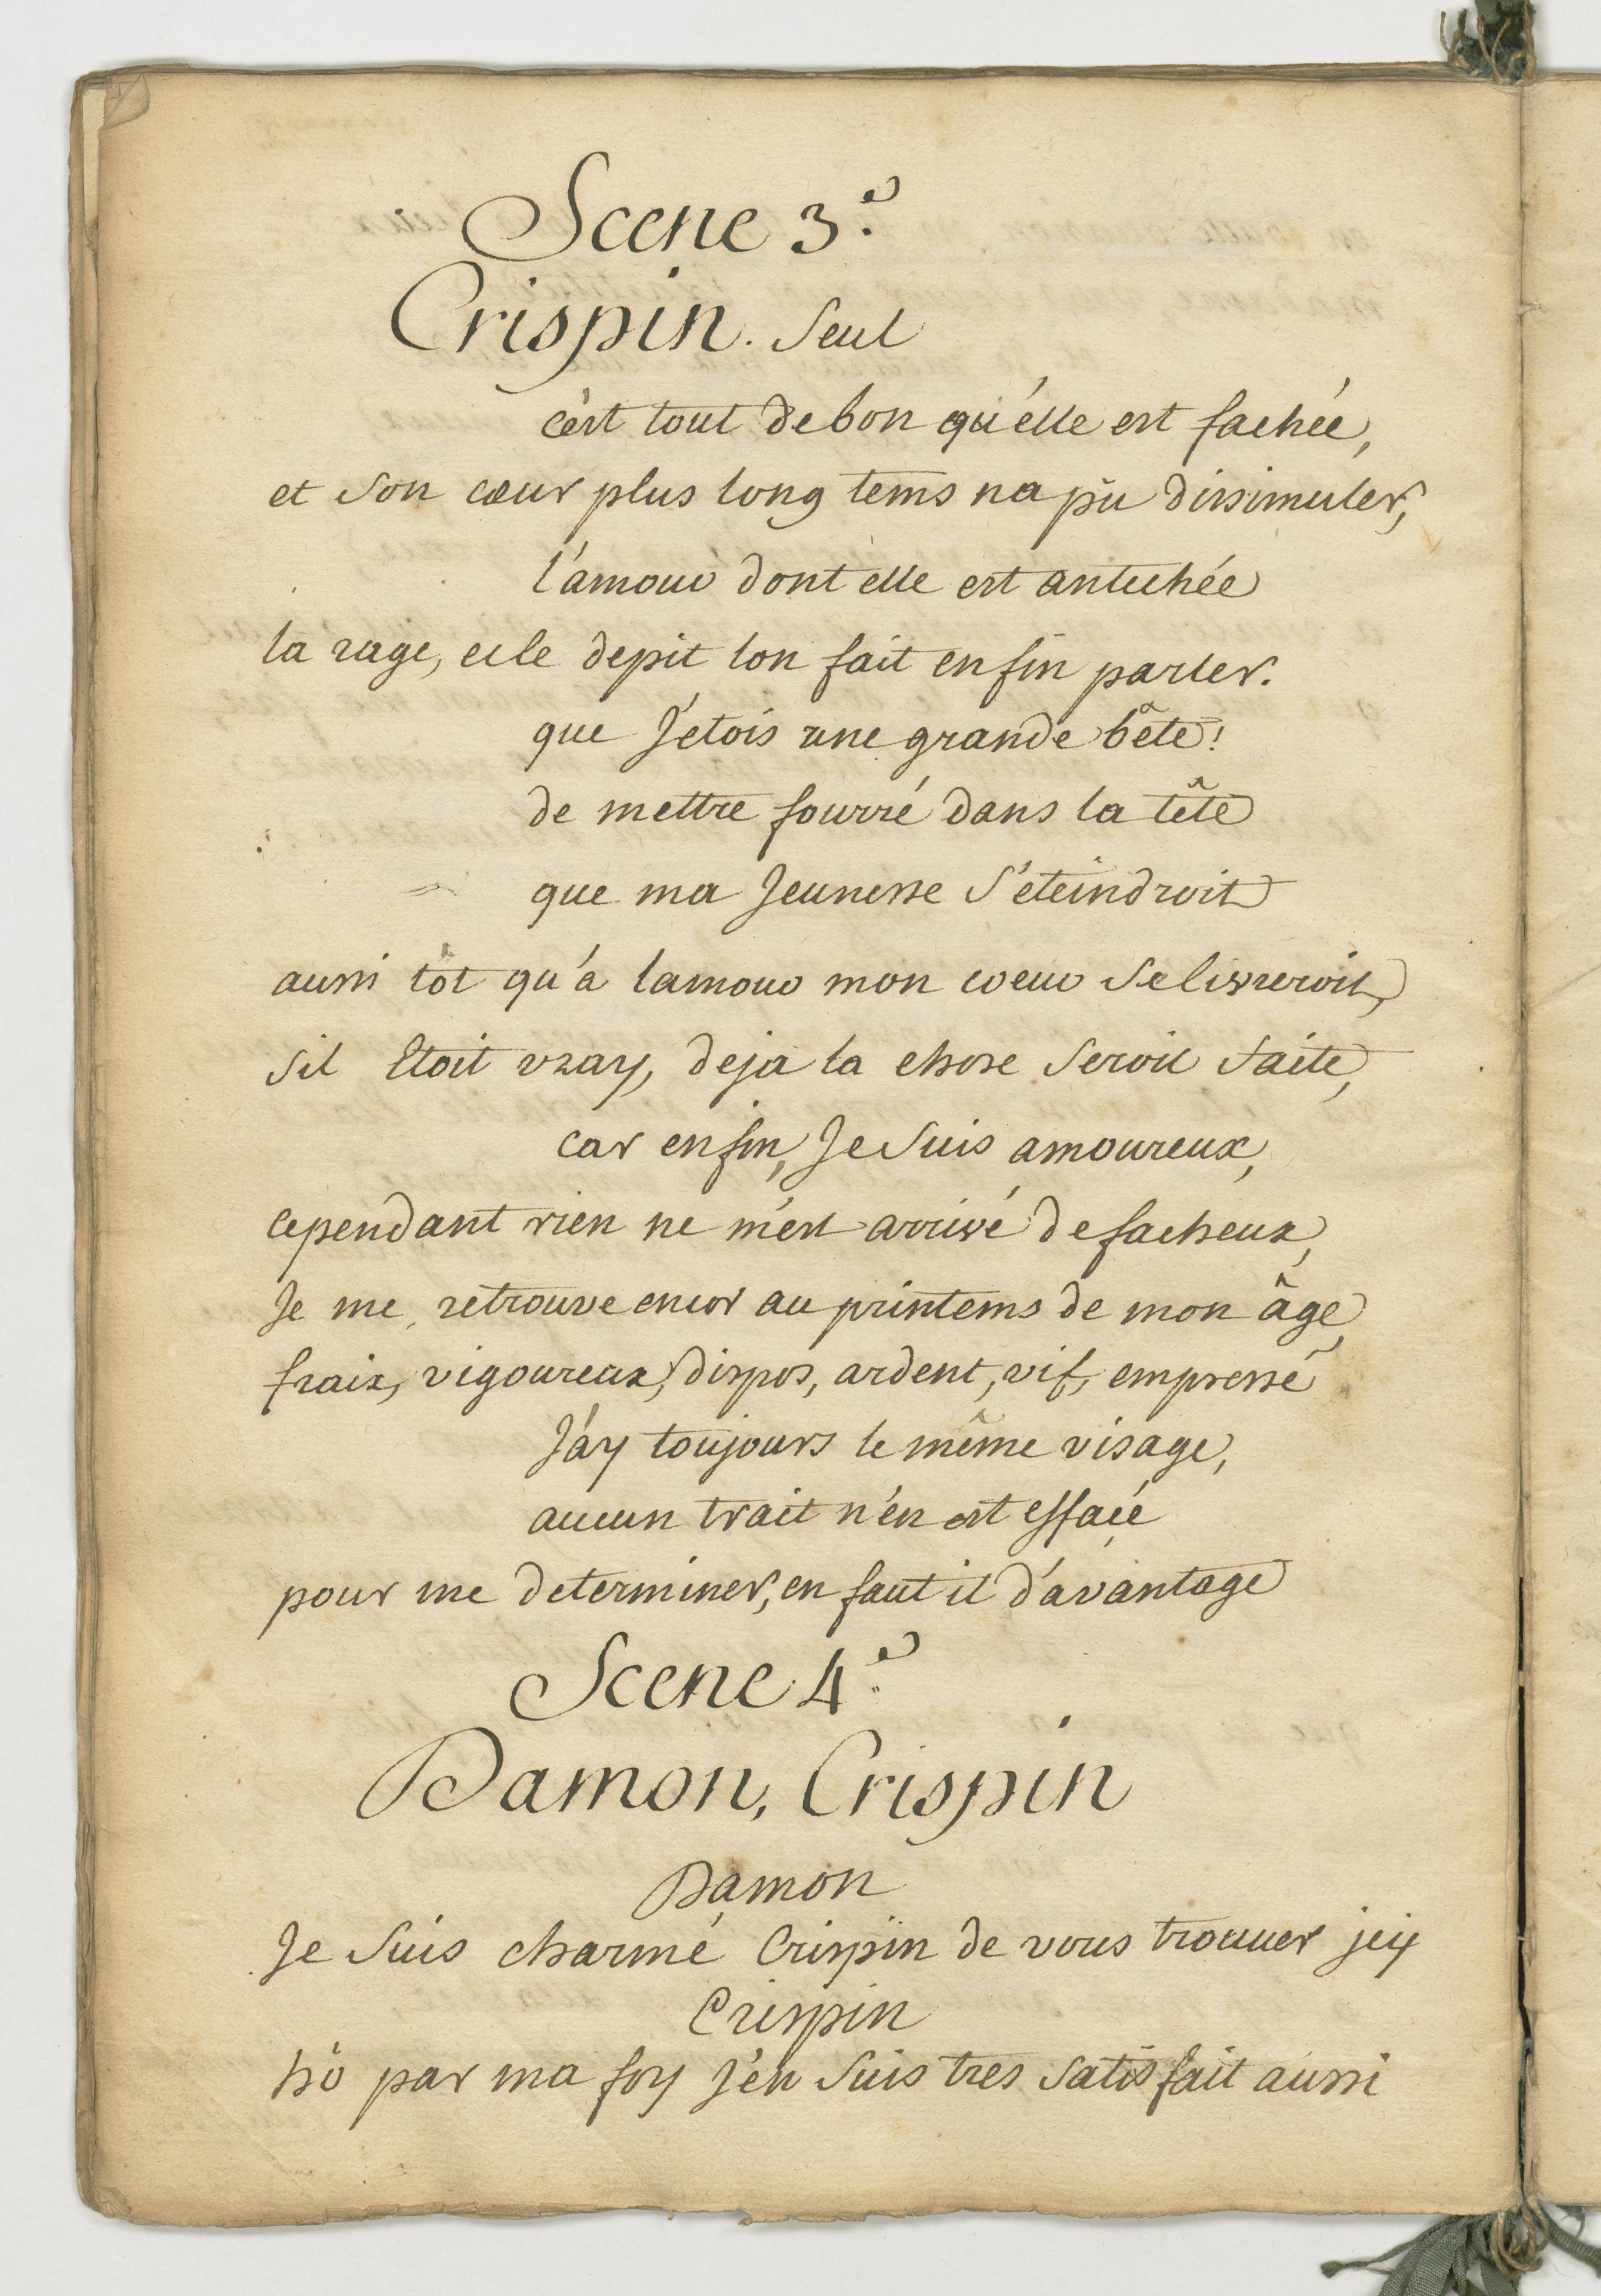 Scene 3.e
Crispin. Seul
c'est tout de bon qu'elle est fachée,
et son cœur plus long tems na pu dissimuler,
l'amour dont elle est antichée
la rage, et le depit lon fait enfin parler.
que J'etois une grande bête!
de mettre fourré dans la tête
que ma Jeunesse s'eteindroit
aussi tôt qu'a lamour mon coeur se livreroit,
sil Etoit vray, deja la chose seroit faite,
car enfin, Je suis amoureux,
cependant rien ne m'est arrivé de facheux,
Je me retrouve encor au printems de mon âge,
fraix, vigoureux, dispos, ardent, vif, empressé
J'ay toujours le même visage,
aucun trait n'en est effacé
pour me determiner, en faut il d'avantage
Scene 4.e
Damon, Crispin
Damon
Je suis charmé Crispin de vous trouver jcy
Crispin
hò par ma foy J'en suis tres satisfait aussi